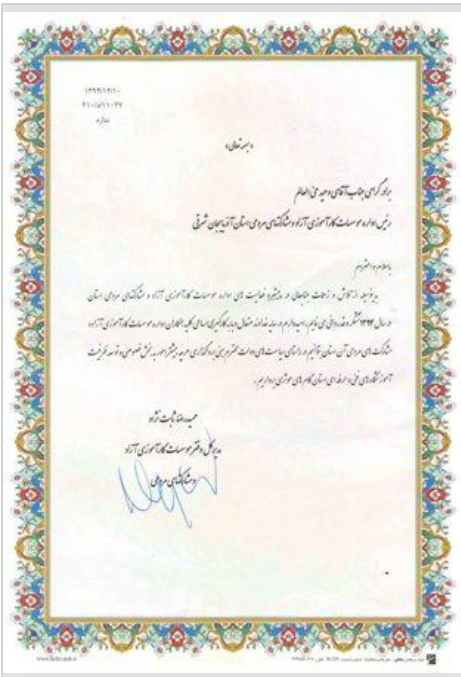 ۱۳۹۴/۱۲/۱۰
۲۱۰/۵۱۱۰۲۷
ندارد
«بسمه تعالی»
برادر گرامی جناب آقای وحید
رئیس اداره موسسات کارآموزی آزاد و مشارکتهای مردمی استان آذربایجان شرقی
با سلام و احترام
بدینوسیله از تلاش و زحمات جنابعالی در پیشبرد فعالیت های اداره موسسات کارآموزی آزاد و مشارکتهای مردمی استان
در سال ۱۳۹۴ تشکر و قدردانی می نمایم، امیدوارم در سایه خداوند متعال و با به کارگیری مساعی کلیه همکاران اداره موسسات کارآموزی آزاد و
مشارکت های مردمی آن استان بتوانیم در راستای سیاست های دولت محترم مبنی بر واگذاری هر چه بیشتر امور به بخش خصوصی و توسعه ظرفیت
آموزشگاه های فنی و حرفه ای استان گام های موثری برداریم.
حمیدرضا ثابت نژاد
مدیرکل دفتر موسسات کارآموزی آزاد
و مشارکتهای مردمی